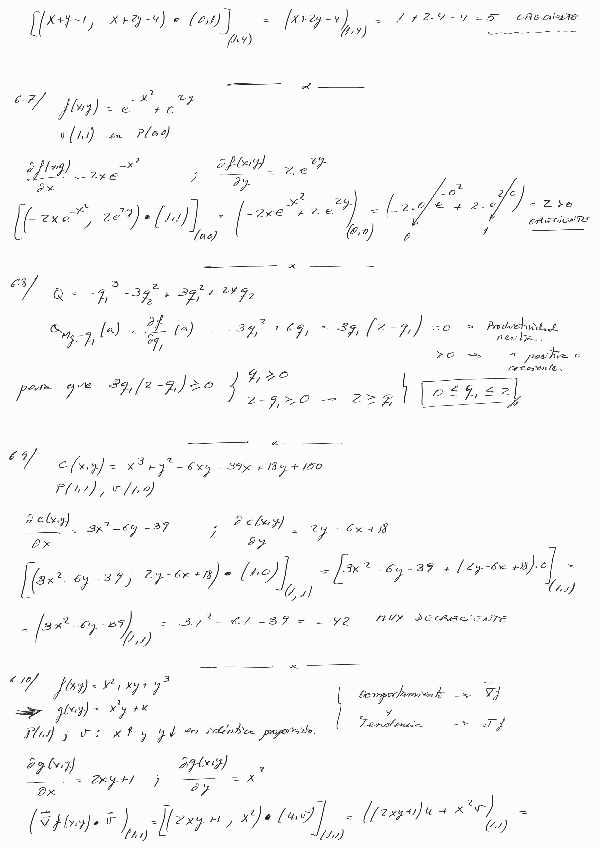 [(x+y-1, x+2y-4) • (0,1)](1,4) = (x+2y-4)(1,4) = 1+2·4-4 = 5 CRECIENTE
6.7/ f(x,y) = e^-x² + e^2y
v(1,1) en P(0,0)
∂f(x,y)/∂x = -2xe^-x² ; ∂f(x,y)/∂y = 2·e^2y
[(-2xe^-x², 2e^2y) • (1,1)](0,0) = (-2xe^-x² + 2·e^2y)(0,0) = (-2·0/e^-0² + 2·e^2·0) = 2>0
0 1 CRECIENTE
6.8/ Q = -q₁³ - 3q₂² + 3q₁² + 24q₂
QMg-q₁(a) = ∂f/∂q₁ (a) = -3q₁² + 6q₁ = 3q₁(2-q₁) =0 Productividad
>0 positiva o
creciente.
para que 3q₁(2-q₁) ≥ 0 { q₁ ≥ 0
2-q₁ ≥ 0 → 2 ≥ q₁ } 0 ≤ q₁ ≤ 2
6.9/ C(x,y) = x³ + y² - 6xy - 39x + 18y + 150
P(1,1), v(1,0)
∂C(x,y)/∂x = 3x² - 6y - 39 ; ∂C(x,y)/∂y = 2y - 6x + 18
[(3x² - 6y - 39, 2y-6x+18) • (1,0)](1,1) = [3x² - 6y - 39 + (2y-6x+18)·0](1,1) =
= (3x² - 6y - 39)(1,1) = 3·1² - 6·1 - 39 = -42 MUY DECRECIENTE
6.10/ f(x,y) = x² + xy + y³ Comportamiento → ∇f
⇒ g(x,y) = x²y + x y
P(1,1) ; v: x↑ y y↓ en idéntica proporción. Tendencia →
∂g(x,y)/∂x = 2xy+1 ; ∂g(x,y)/∂y = x²
(∇f(x,y) • v)(1,1) = [(2xy+1, x²) • (u,v)](1,1) = ((2xy+1)u + x²v)(1,1) =